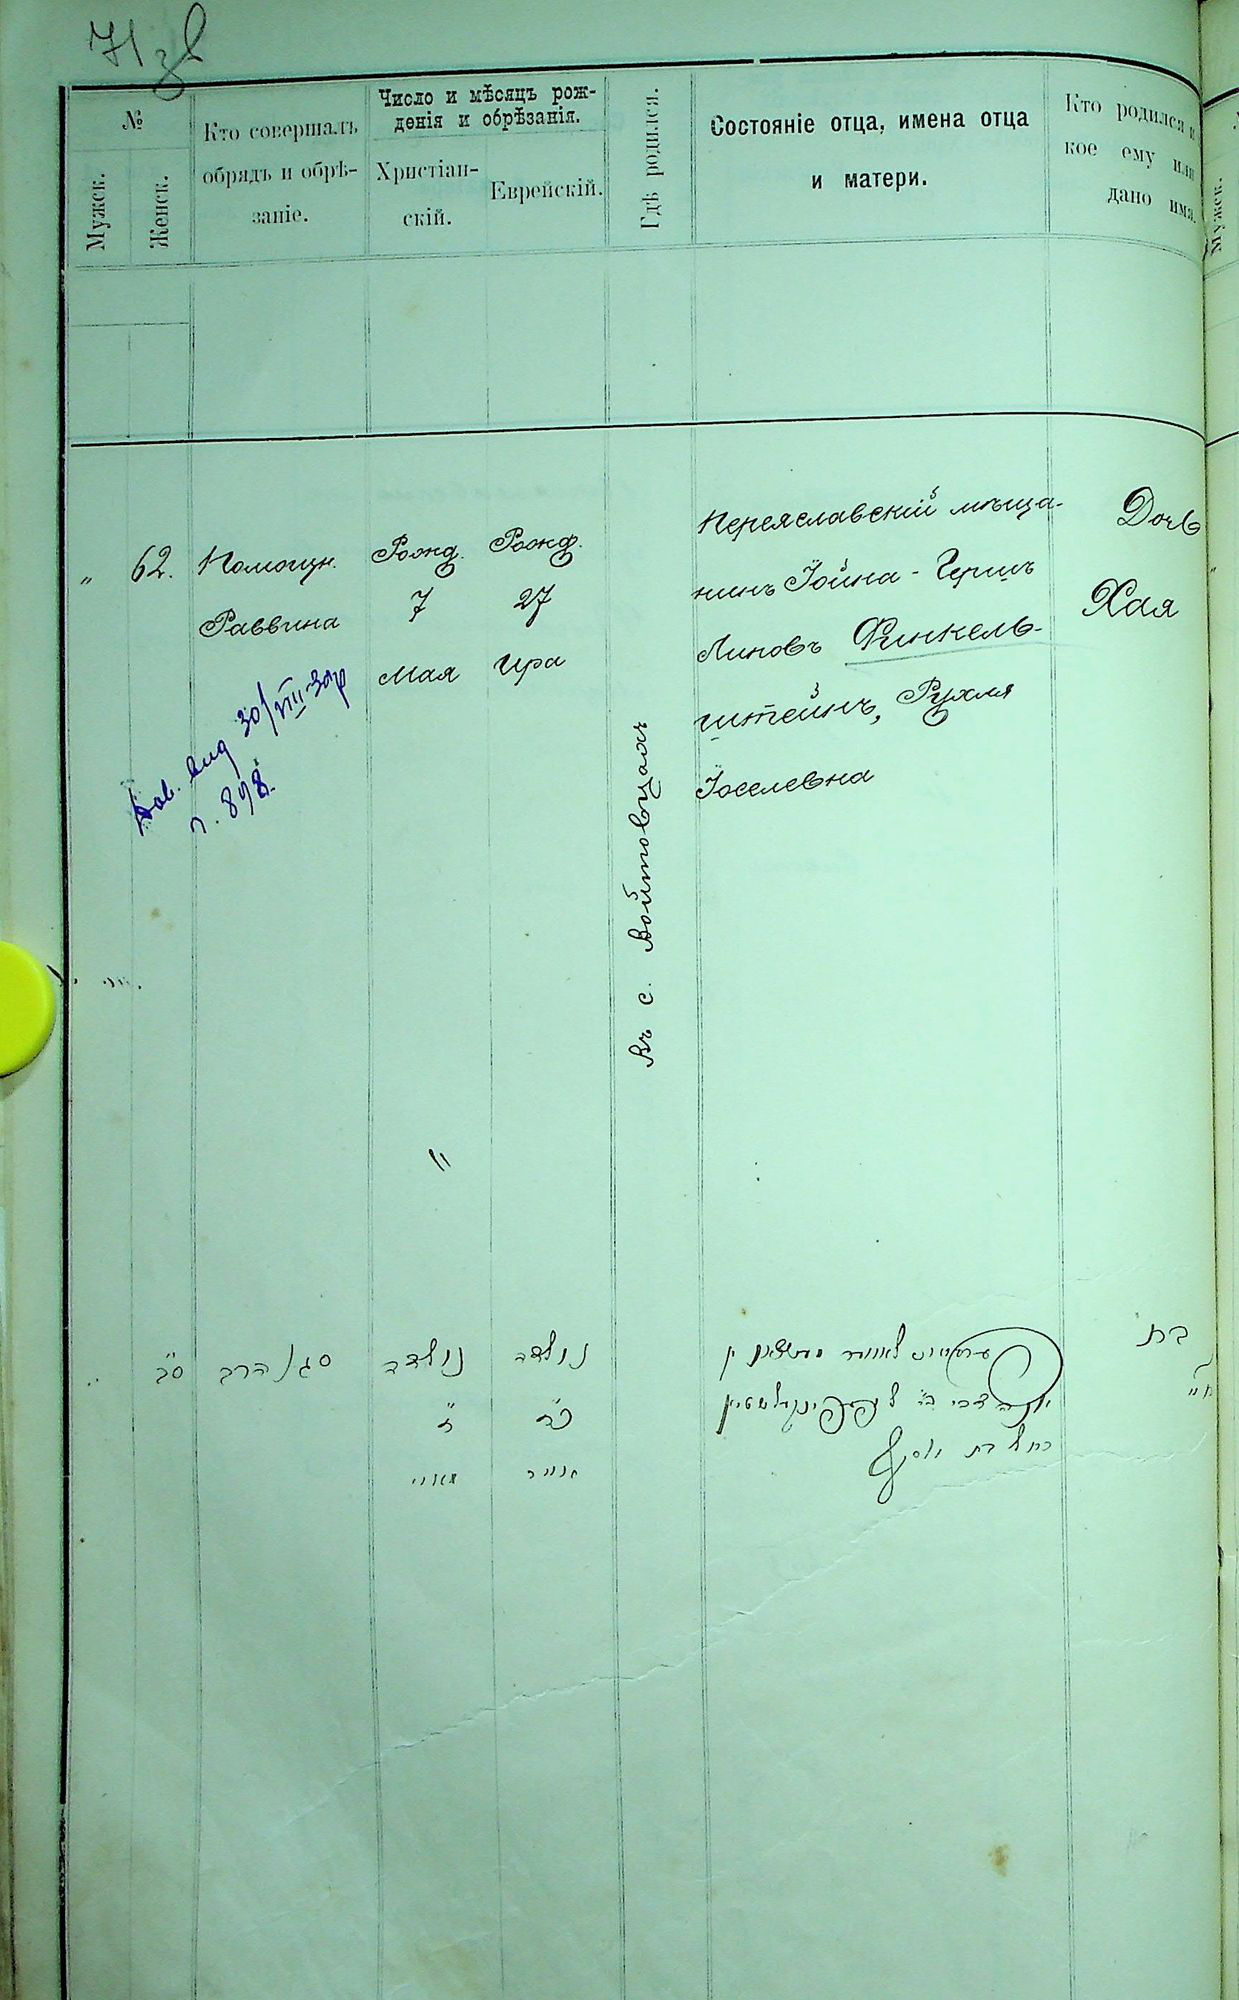 71 зв
№
Мужск.
Женск.
Кто совершалъ
обрядъ и обрѣ-
заніе.
Число и мѣсяцъ рож-
денія и обрѣзанія.
Христіан-
скій.
Еврейскій.
Гдѣ родился.
Состояніе отца, имена отца
и матери.
Кто родился и
кое ему или
дано имя.
Мужск.
" 62.
Помощн.
Раввина
Рожд.
7
Мая
Рожд.
27
Ира
Въ с. Войтовцахъ
Переяславскій мѣща-
нинъ Іойна-Гершъ
Линовъ Финкель-
штейнъ, Рухля
Іоселевна
Дочь
Хая
30/VIII-39р
898
"
ס״ב
סגן הרב
נולדה
ז׳
מאיי
נולדה
כ״ז
אייר
רחל בת יוסף
בת
חי׳